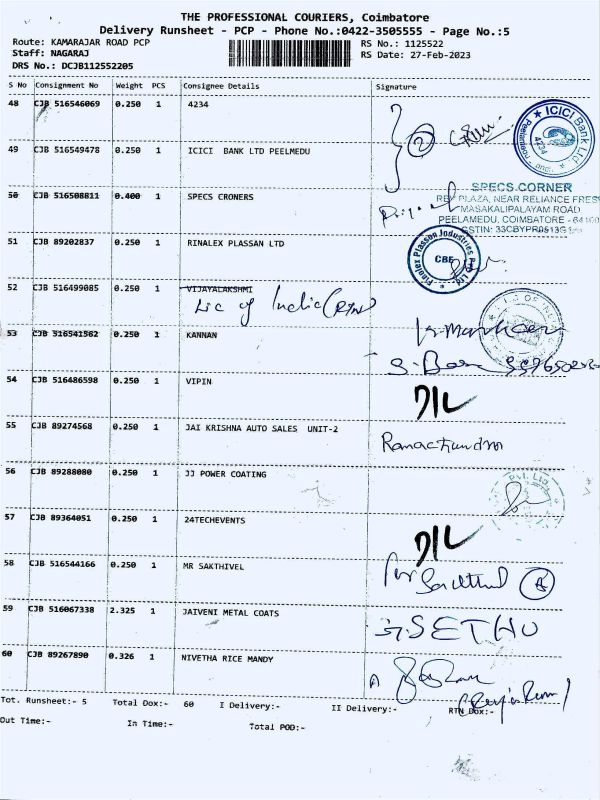 THE PROFESSIONAL COURIERS, Coimbatore
Delivery Runsheet - PCP - Phone No.:0422-3505555 - Page No.:5
Route: KAMARAJAR ROAD PCP
RS No.: 1125522
Staff: NAGARAJ
RS Date: 27-Feb-2023
DRS No.: DCJB112552205
S No Consignment No Weight PCS Consignee Details Signature
48 CJB 516546069 0.250 1 4234
ICICI Bank Ltd
4234
2
49 CJB 516549478 0.250 1 ICICI BANK LTD PEELMEDU
50 CJB 516508811 0.400 1 SPECS CRONERS
SPECS.CORNER
PLAZA, NEAR RELIANCE FRES
MASAKALIPALAYAM ROAD
PEELAMEDU, COIMBATORE
51 CJB 89202837 0.250 1 RINALEX PLASSAN LTD
Finolex Plasson Industries P
CBE
52 CJB 516499085 0.250 1 VIJAYALAKSHMI
Lic of India (RTN)
53 CJB 516541562 0.250 1 KANNAN
54 CJB 516486598 0.250 1 VIPIN
D/L
55 CJB 89274568 0.250 1 JAI KRISHNA AUTO SALES UNIT-2
Ramachandran
56 CJB 89288080 0.250 1 JJ POWER COATING
57 CJB 89364051 0.250 1 24TECHEVENTS
D/L
58 CJB 516544166 0.250 1 MR SAKTHIVEL
59 CJB 516067338 2.325 1 JAIVENI METAL COATS
SETHU
60 CJB 89267890 0.326 1 NIVETHA RICE MANDY
Tot. Runsheet:- 5 Total Dox:- 60 I Delivery:- II Delivery:- RTN Dox:-
Out Time:- In Time:- Total POD:-